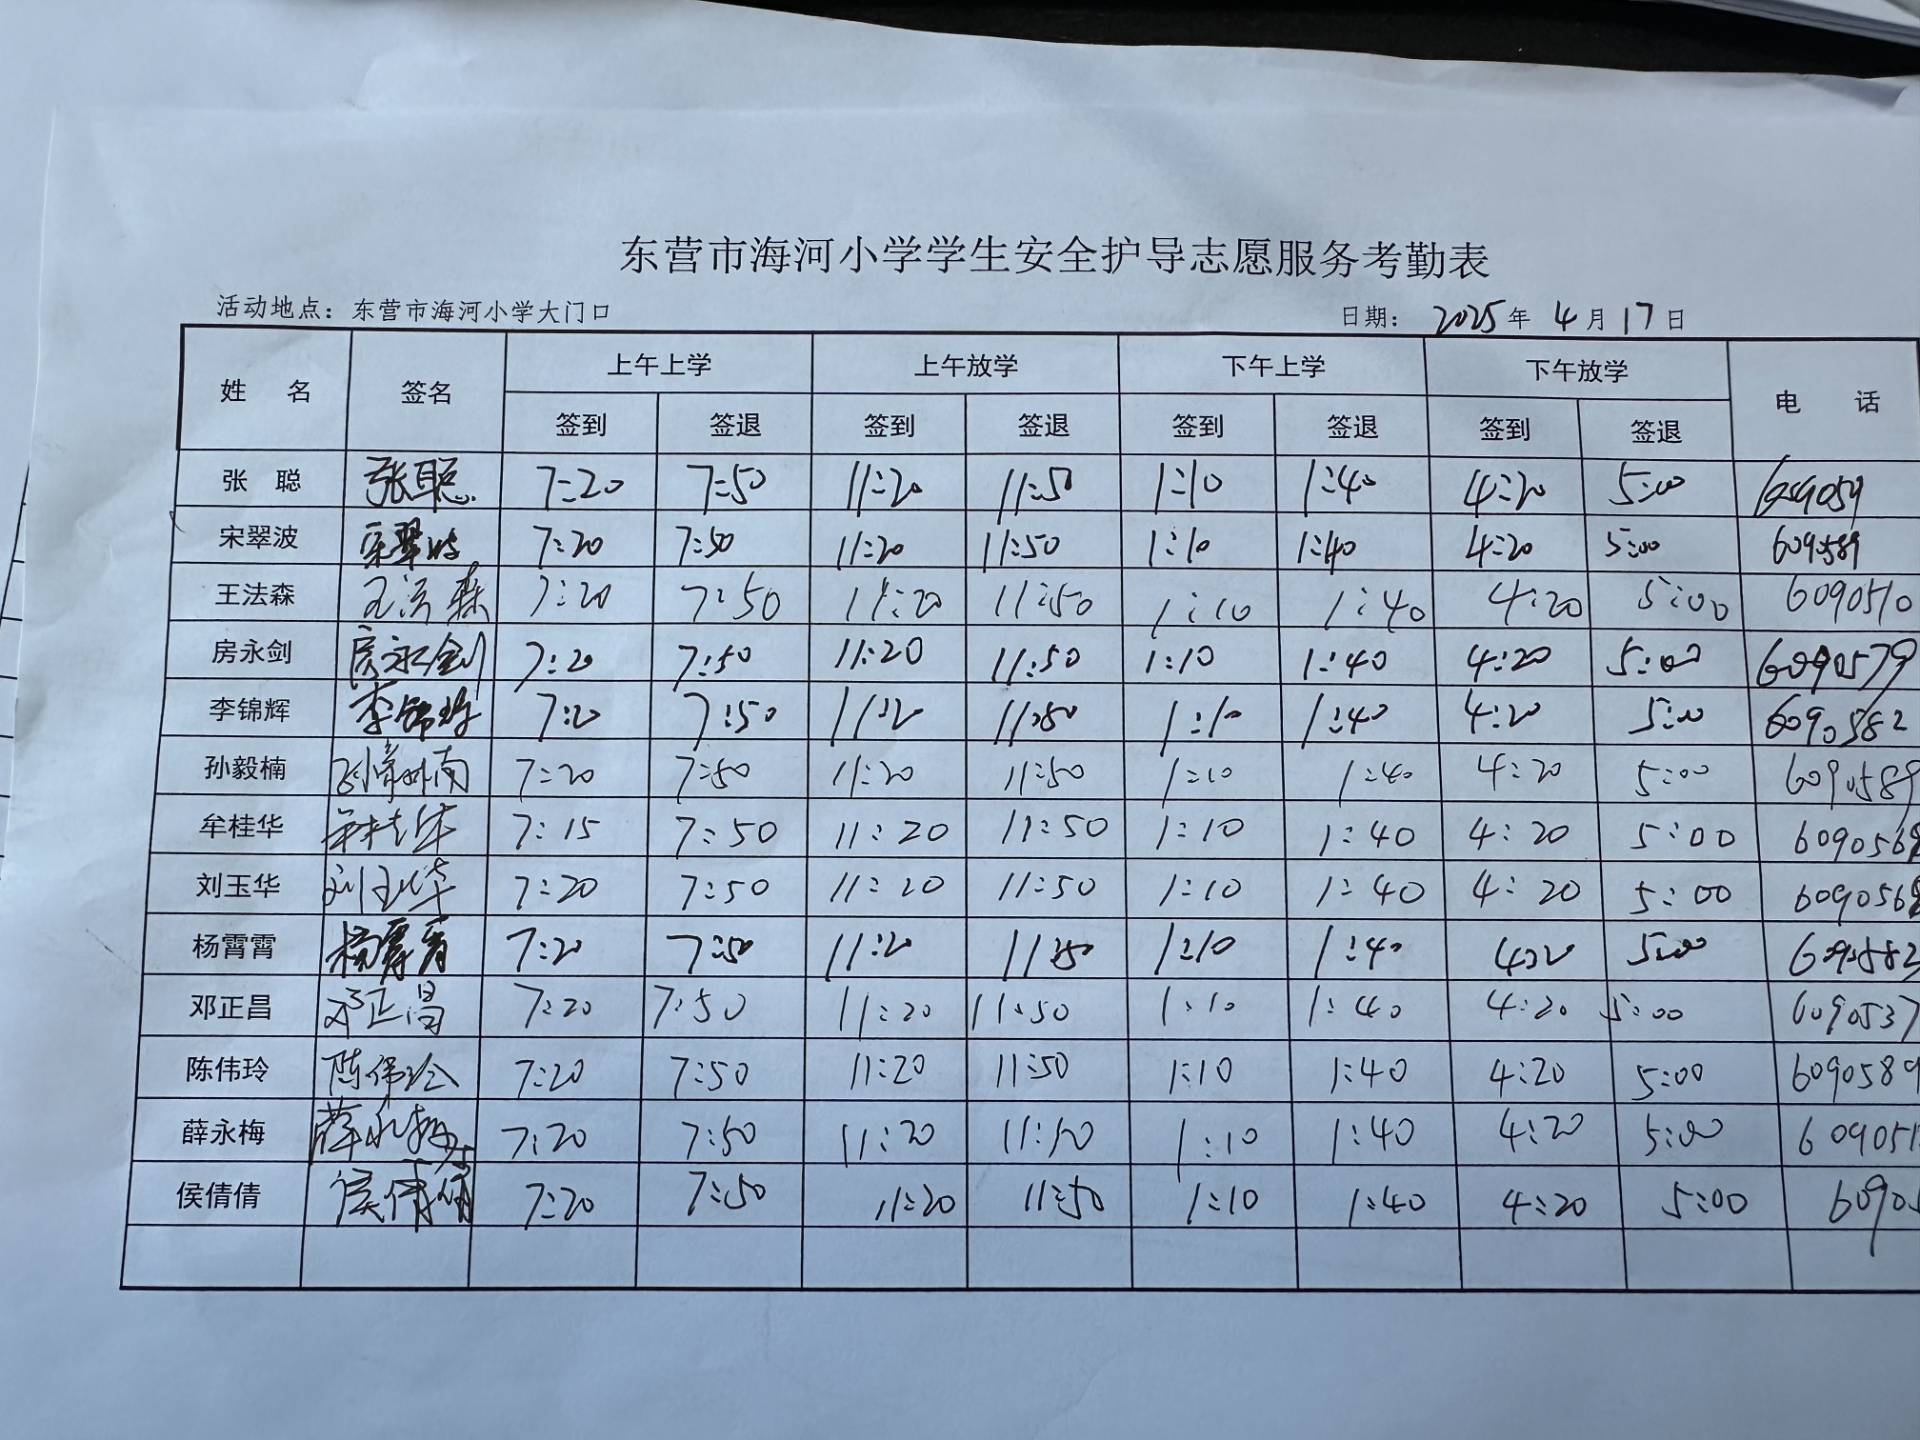 东营市海河小学学生安全护导志愿服务考勤表
活动地点：东营市海河小学大门口 日期： 2025年 4月17日
姓 名 签名 上午上学 上午放学 下午上学 下午放学 电 话
签到 签退 签到 签退 签到 签退 签到 签退
张 聪 张聪 7:20 7:50 11:20 11:50 1:10 1:40 4:20 5:00
宋翠波 宋翠波 7:20 7:50 11:20 11:50 1:10 1:40 4:20 5:00
王法森 王法森 7:20 7:50 11:20 11:50 1:10 1:40 4:20 5:00 6090510
房永剑 房永剑 7:20 7:50 11:20 11:50 1:10 1:40 4:20 5:00 6090579
李锦辉 李锦辉 7:20 7:50 11:20 11:50 1:10 1:40 4:20 5:00 6090582
孙毅楠 孙毅楠 7:20 7:50 11:20 11:50 1:10 1:40 4:20 5:00 6090589
牟桂华 牟桂华 7:15 7:50 11:20 11:50 1:10 1:40 4:20 5:00 6090568
刘玉华 刘玉华 7:20 7:50 11:20 11:50 1:10 1:40 4:20 5:00 6090568
杨霄霄 杨霄霄 7:20 7:50 11:20 11:50 1:10 1:40 4:20 5:00 6090582
邓正昌 邓正昌 7:20 7:50 11:20 11:50 1:10 1:40 4:20 5:00 6090537
陈伟玲 陈伟玲 7:20 7:50 11:20 11:50 1:10 1:40 4:20 5:00 6090589
薛永梅 薛永梅 7:20 7:50 11:20 11:50 1:10 1:40 4:20 5:00 609051
侯倩倩 侯倩倩 7:20 7:50 11:20 11:50 1:10 1:40 4:20 5:00 60905